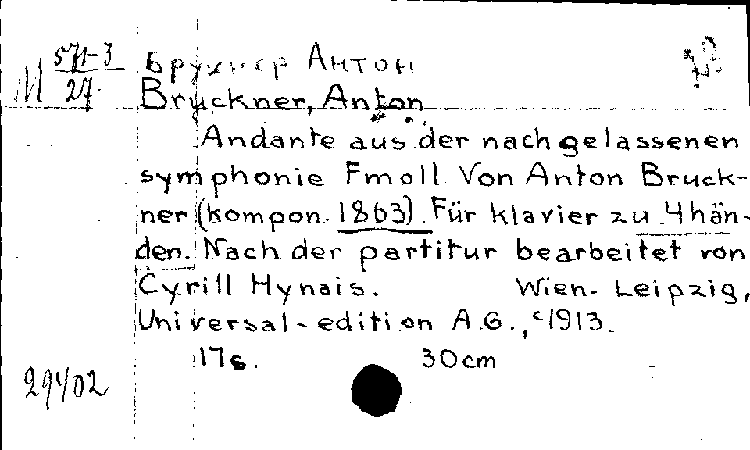 М 571-3
27.
Брукнер Антон
Bruckner, Anton
Andante aus der nachgelassenen
symphonie Fmoll. Von Anton Bruck-
ner (kompon. 1863). Für klavier zu 4 hän-
den. Nach der partitur bearbeitet von
Cyrill Hynais. Wien-Leipzig,
Universal-edition A.G., c1913.
17s. 30cm
29402